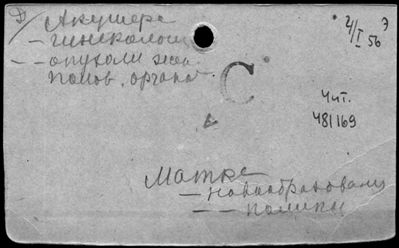 Д/ Акушерс
— гинеколог
— — опухоли жен
полов. органов
2/I 56 Э
С
Чит.
481169
Матка
— новообразования
— — полипы